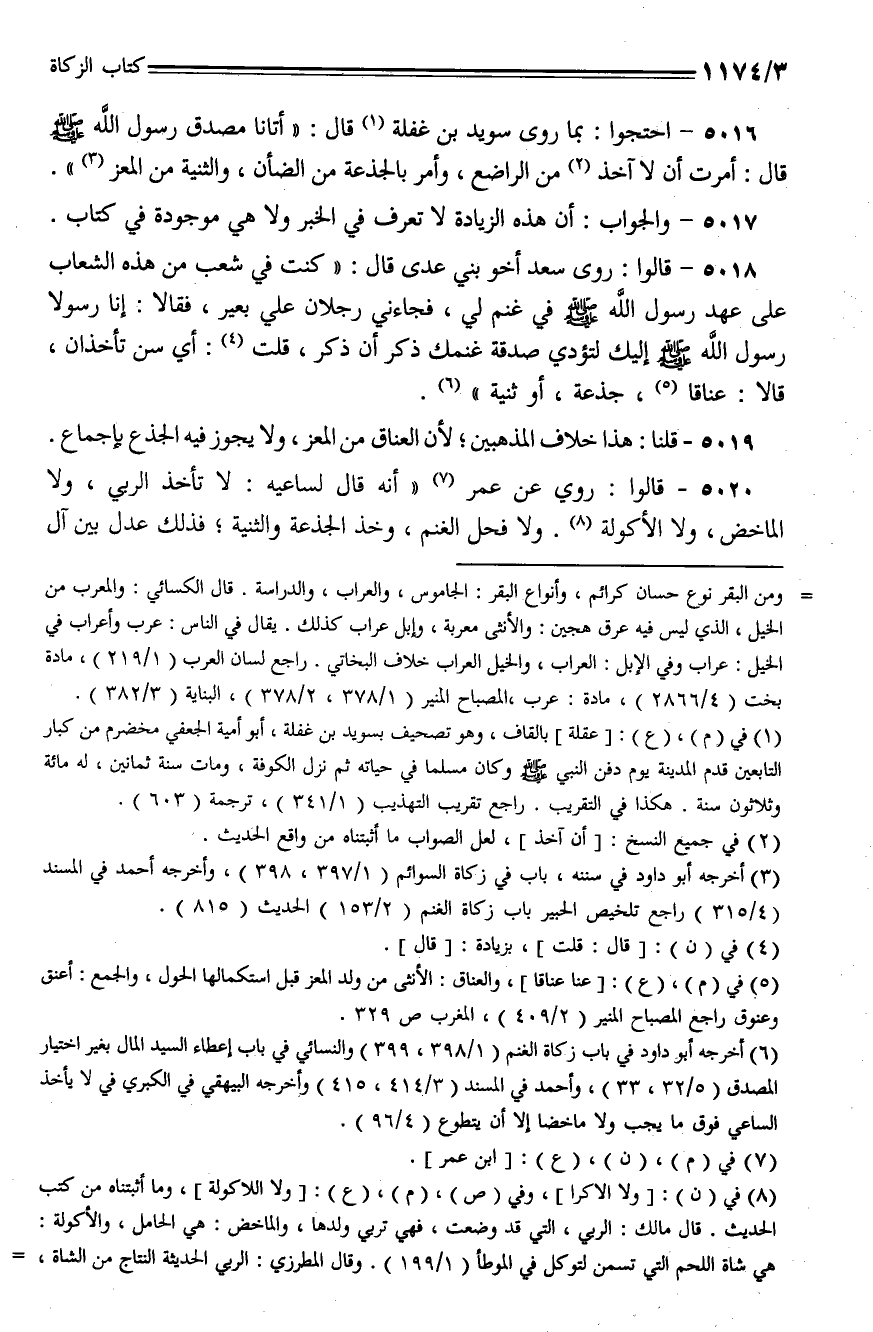 ١١٧٤/٣ كتاب الزكاة
٥٠١٦ - احتجوا : بما روى سويد بن غفلة (١) قال : « أتانا مصدق رسول اللَّه ﷺ
قال : أمرت أن لا آخذ (٢) من الراضع ، وأمر بالجذعة من الضأن ، والثنية من المعز (٣) » .
٥٠١٧ - والجواب : أن هذه الزيادة لا تعرف في الخبر ولا هي موجودة في كتاب .
٥٠١٨ - قالوا : روى سعد أخو بني عدى قال : « كنت في شعب من هذه الشعاب
على عهد رسول اللَّه ﷺ في غنم لي ، فجاءني رجلان علي بعير ، فقالا : إنا رسولا
رسول اللَّه ﷺ إليك لتؤدي صدقة غنمك ذكر أن ذكر ، قلت (٤) : أي سن تأخذان ،
قالا : عناقا (٥) ، جذعة ، أو ثنية » (٦) .
٥٠١٩ - قلنا : هذا خلاف المذهبين ؛ لأن العناق من المعز ، ولا يجوز فيه الجذع بإجماع .
٥٠٢٠ - قالوا : روي عن عمر (٧) « أنه قال لساعيه : لا تأخذ الربي ، ولا
الماخض ، ولا الأكولة (٨) . ولا فحل الغنم ، وخذ الجذعة والثنية ؛ فذلك عدل بين آل
= ومن البقر نوع حسان كرائم ، وأنواع البقر : الجاموس ، والعراب ، والدراسة . قال الكسائي : والمعرب من
الخيل ، الذي ليس فيه عرق هجين : والأنثى معربة ، وإبل عراب كذلك . يقال في الناس : عرب وأعراب في
الخيل : عراب وفي الإبل : العراب ، والخيل العراب خلاف البخاتي . راجع لسان العرب ( ٢١٩/١ ) ، مادة
بخت ( ٢٨٦٦/٤ ) ، مادة : عرب ،المصباح المنير ( ٣٧٨/١ ، ٣٧٨/٢ ) ، البناية ( ٣٨٢/٣ ) .
(١) في ( م ) ، ( ع ) : [ عقلة ] بالقاف ، وهو تصحيف بسويد بن غفلة ، أبو أمية الجعفي مخضرم من كبار
التابعين قدم المدينة يوم دفن النبي ﷺ وكان مسلما في حياته ثم نزل الكوفة ، ومات سنة ثمانين ، له مائة
وثلاثون سنة . هكذا في التقريب . راجع تقريب التهذيب ( ٣٤١/١ ) ، ترجمة ( ٦٠٣ ) .
(٢) في جميع النسخ : [ أن آخذ ] ، لعل الصواب ما أثبتناه من واقع الحديث .
(٣) أخرجه أبو داود في سننه ، باب في زكاة السوائم ( ٣٩٧/١ ، ٣٩٨ ) ، وأخرجه أحمد في المسند
( ٣١٥/٤ ) راجع تلخيص الحبير باب زكاة الغنم ( ١٥٣/٢ ) الحديث ( ٨١٥ ) .
(٤) في ( ن ) : [ قال : قلت ] ، بزيادة : [ قال ] .
(٥) في ( م ) ، ( ع ) : [ عنا عناقا ] ، والعناق : الأنثى من ولد المعز قبل استكمالها الحول ، والجمع : أعنق
وعنوق راجع المصباح المنير ( ٤٠٩/٢ ) ، المغرب ص ٣٢٩ .
(٦) أخرجه أبو داود في باب زكاة الغنم ( ٣٩٨/١ ، ٣٩٩ ) والنسائي في باب إعطاء السيد المال بغير اختيار
المصدق ( ٣٢/٥ ، ٣٣ ) ، وأحمد في المسند ( ٤١٤/٣ ، ٤١٥ ) وأخرجه البيهقي في الكبري في لا يأخذ
الساعي فوق ما يجب ولا ماخضا إلا أن يتطوع ( ٩٦/٤ ) .
(٧) في ( م ) ، ( ن ) ، ( ع ) : [ ابن عمر ] .
(٨) في ( ن ) : [ ولا الاكرا ] ، وفي ( ص ) ، ( م ) ، ( ع ) : [ ولا اللاكولة ] ، وما أثبتناه من كتب
الحديث . قال مالك : الربي ، التي قد وضعت ، فهي تربي ولدها ، والماخض : هي الحامل ، والأكولة :
هي شاة اللحم التي تسمن لتوكل في الموطأ ( ١٩٩/١ ) . وقال المطرزي : الربي الحديثة النتاج من الشاة ، =